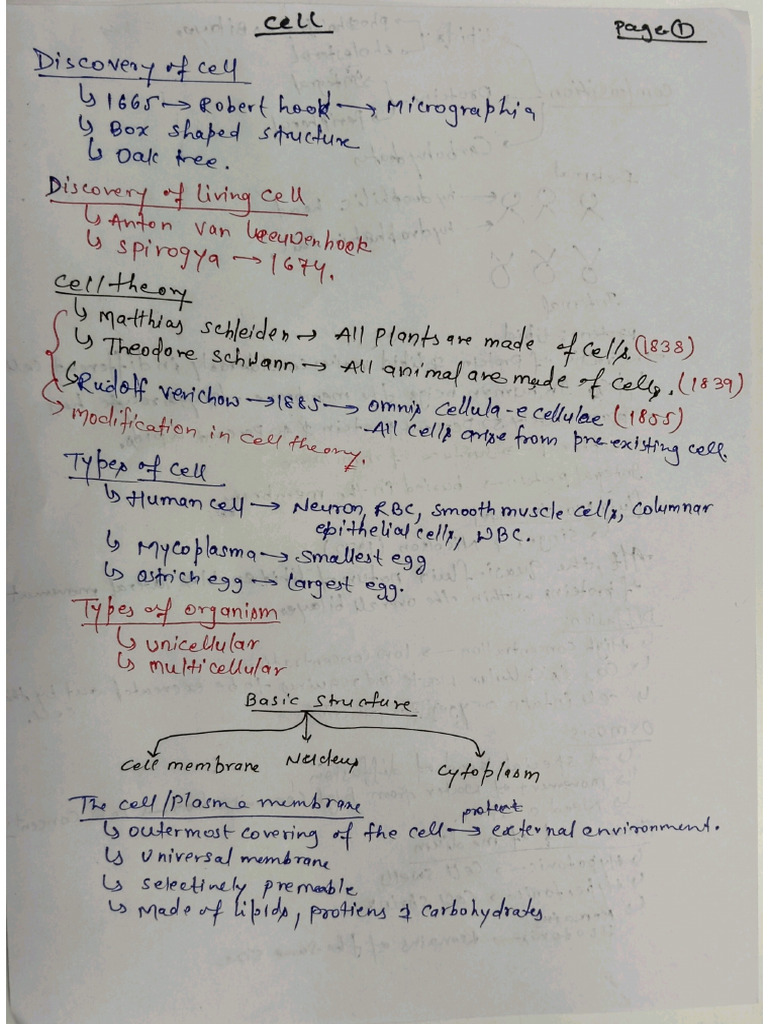 Cell
Page ①
Discovery of cell
↳ 1665 → Robert hook → Micrographia
↳ Box shaped structure
↳ Oak tree.
Discovery of living cell
↳ Anton van Leeuwenhoek
↳ Spirogya → 1674.
Cell theory
↳ Matthias Schleiden → All plants are made of cells (1838)
↳ Theodore Schwann → All animal are made of cells. (1839)
↳ Rudolf verichow → 1885 → omnis cellula-e cellulae (1855)
- All cells arise from pre-existing cell.
↳ modification in cell theory.
Types of cell
↳ Human cell → Neuron, RBC, smooth muscle cells, columnar
epithelial cells, WBC.
↳ Mycoplasma → smallest egg
↳ ostrich egg → largest egg.
Types of organism
↳ unicellular
↳ multicellular
Basic structure
Cell membrane Nucleus cytoplasm
The cell/plasma membrane
↳ outermost covering of the cell → protect external environment.
↳ universal membrane
↳ selectively premeable
↳ Made of lipids, protiens & carbohydrates